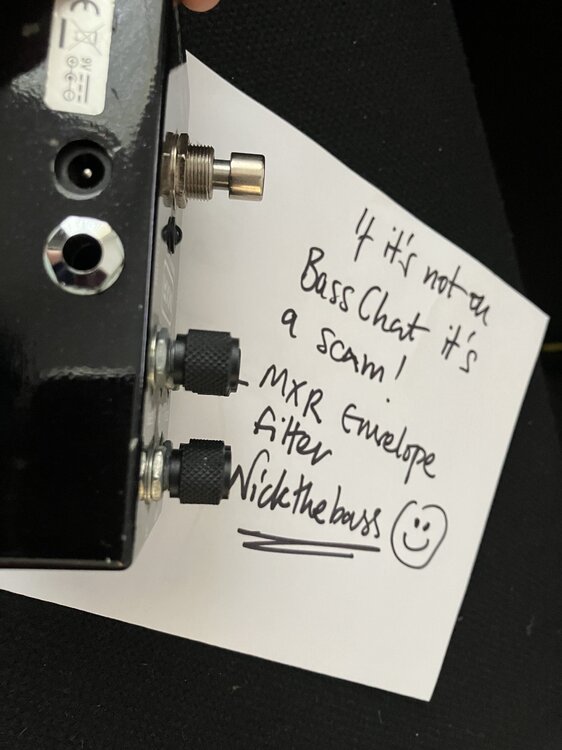 9V
If it's not on
BassChat it's
a scam!
MXR Envelope
filter
Nickthebass